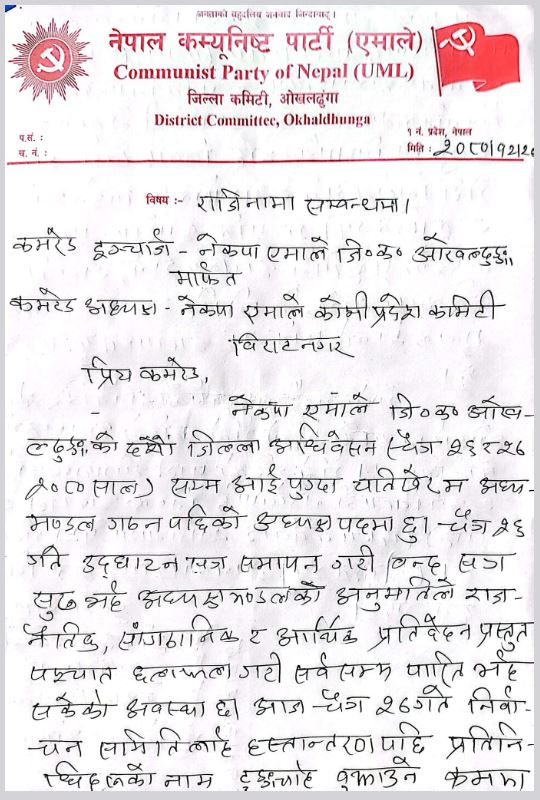 जनताको बहुदलीय जनवाद जिन्दावाद !
नेपाल कम्यूनिष्ट पार्टी (एमाले)
Communist Party of Nepal (UML)
जिल्ला कमिटी, ओखलढुंगा
District Committee, Okhaldhunga
१ नं. प्रदेश, नेपाल
प.सं. :
च. नं. :
मिति : २०८०/१२/२७
विषय :- राजिनामा सम्बन्धमा।
कमरेड इन्चार्ज - नेकपा एमाले जि०क० ओखलढुङ्गा
मार्फत
कमरेड अध्यक्ष - नेकपा एमाले कोशी प्रदेश कमिटी
विराटनगर
प्रिय कमरेड,
नेकपा एमाले जि०क० ओख-
लढुङ्गाको दशौं जिल्ला अधिवेसन (चैत्र २६ र २७
२०८० साल) सम्म आई पुग्दा यतिखेर म अध्य-
मण्डल गठन पछिको अध्यक्ष पदमा छु। चैत्र २६
गते उद्घाटन सत्र समापन गरी बन्द सत्र
सुरु भई अध्यक्षमण्डलको अनुमतिले राज-
नैतिक, सांगठानिक र आर्थिक प्रतिवेदन प्रस्तुत
पश्चात छलफल गरी सर्वसम्म पारित भई
सकेको अवस्था छ। आज चैत्र २७ गते निर्वा-
चन समितिलाई हस्तान्तरण पछि प्रतिनि-
धिहरूको नाम बुझाउने क्रममा